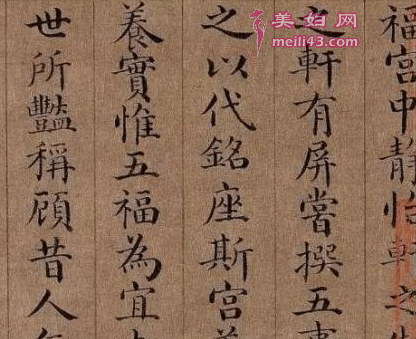 美妇网
meili43.com
福宮中靜怡軒之
之軒有屏嘗撰五事
之以代銘座斯宮
養實惟五福為宜
世所豔稱顧昔人